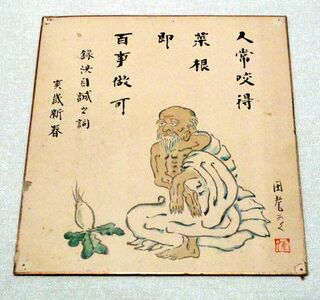 人常咬得
菜根
即
百事做可
録洪自誠之詞
寅歳新春